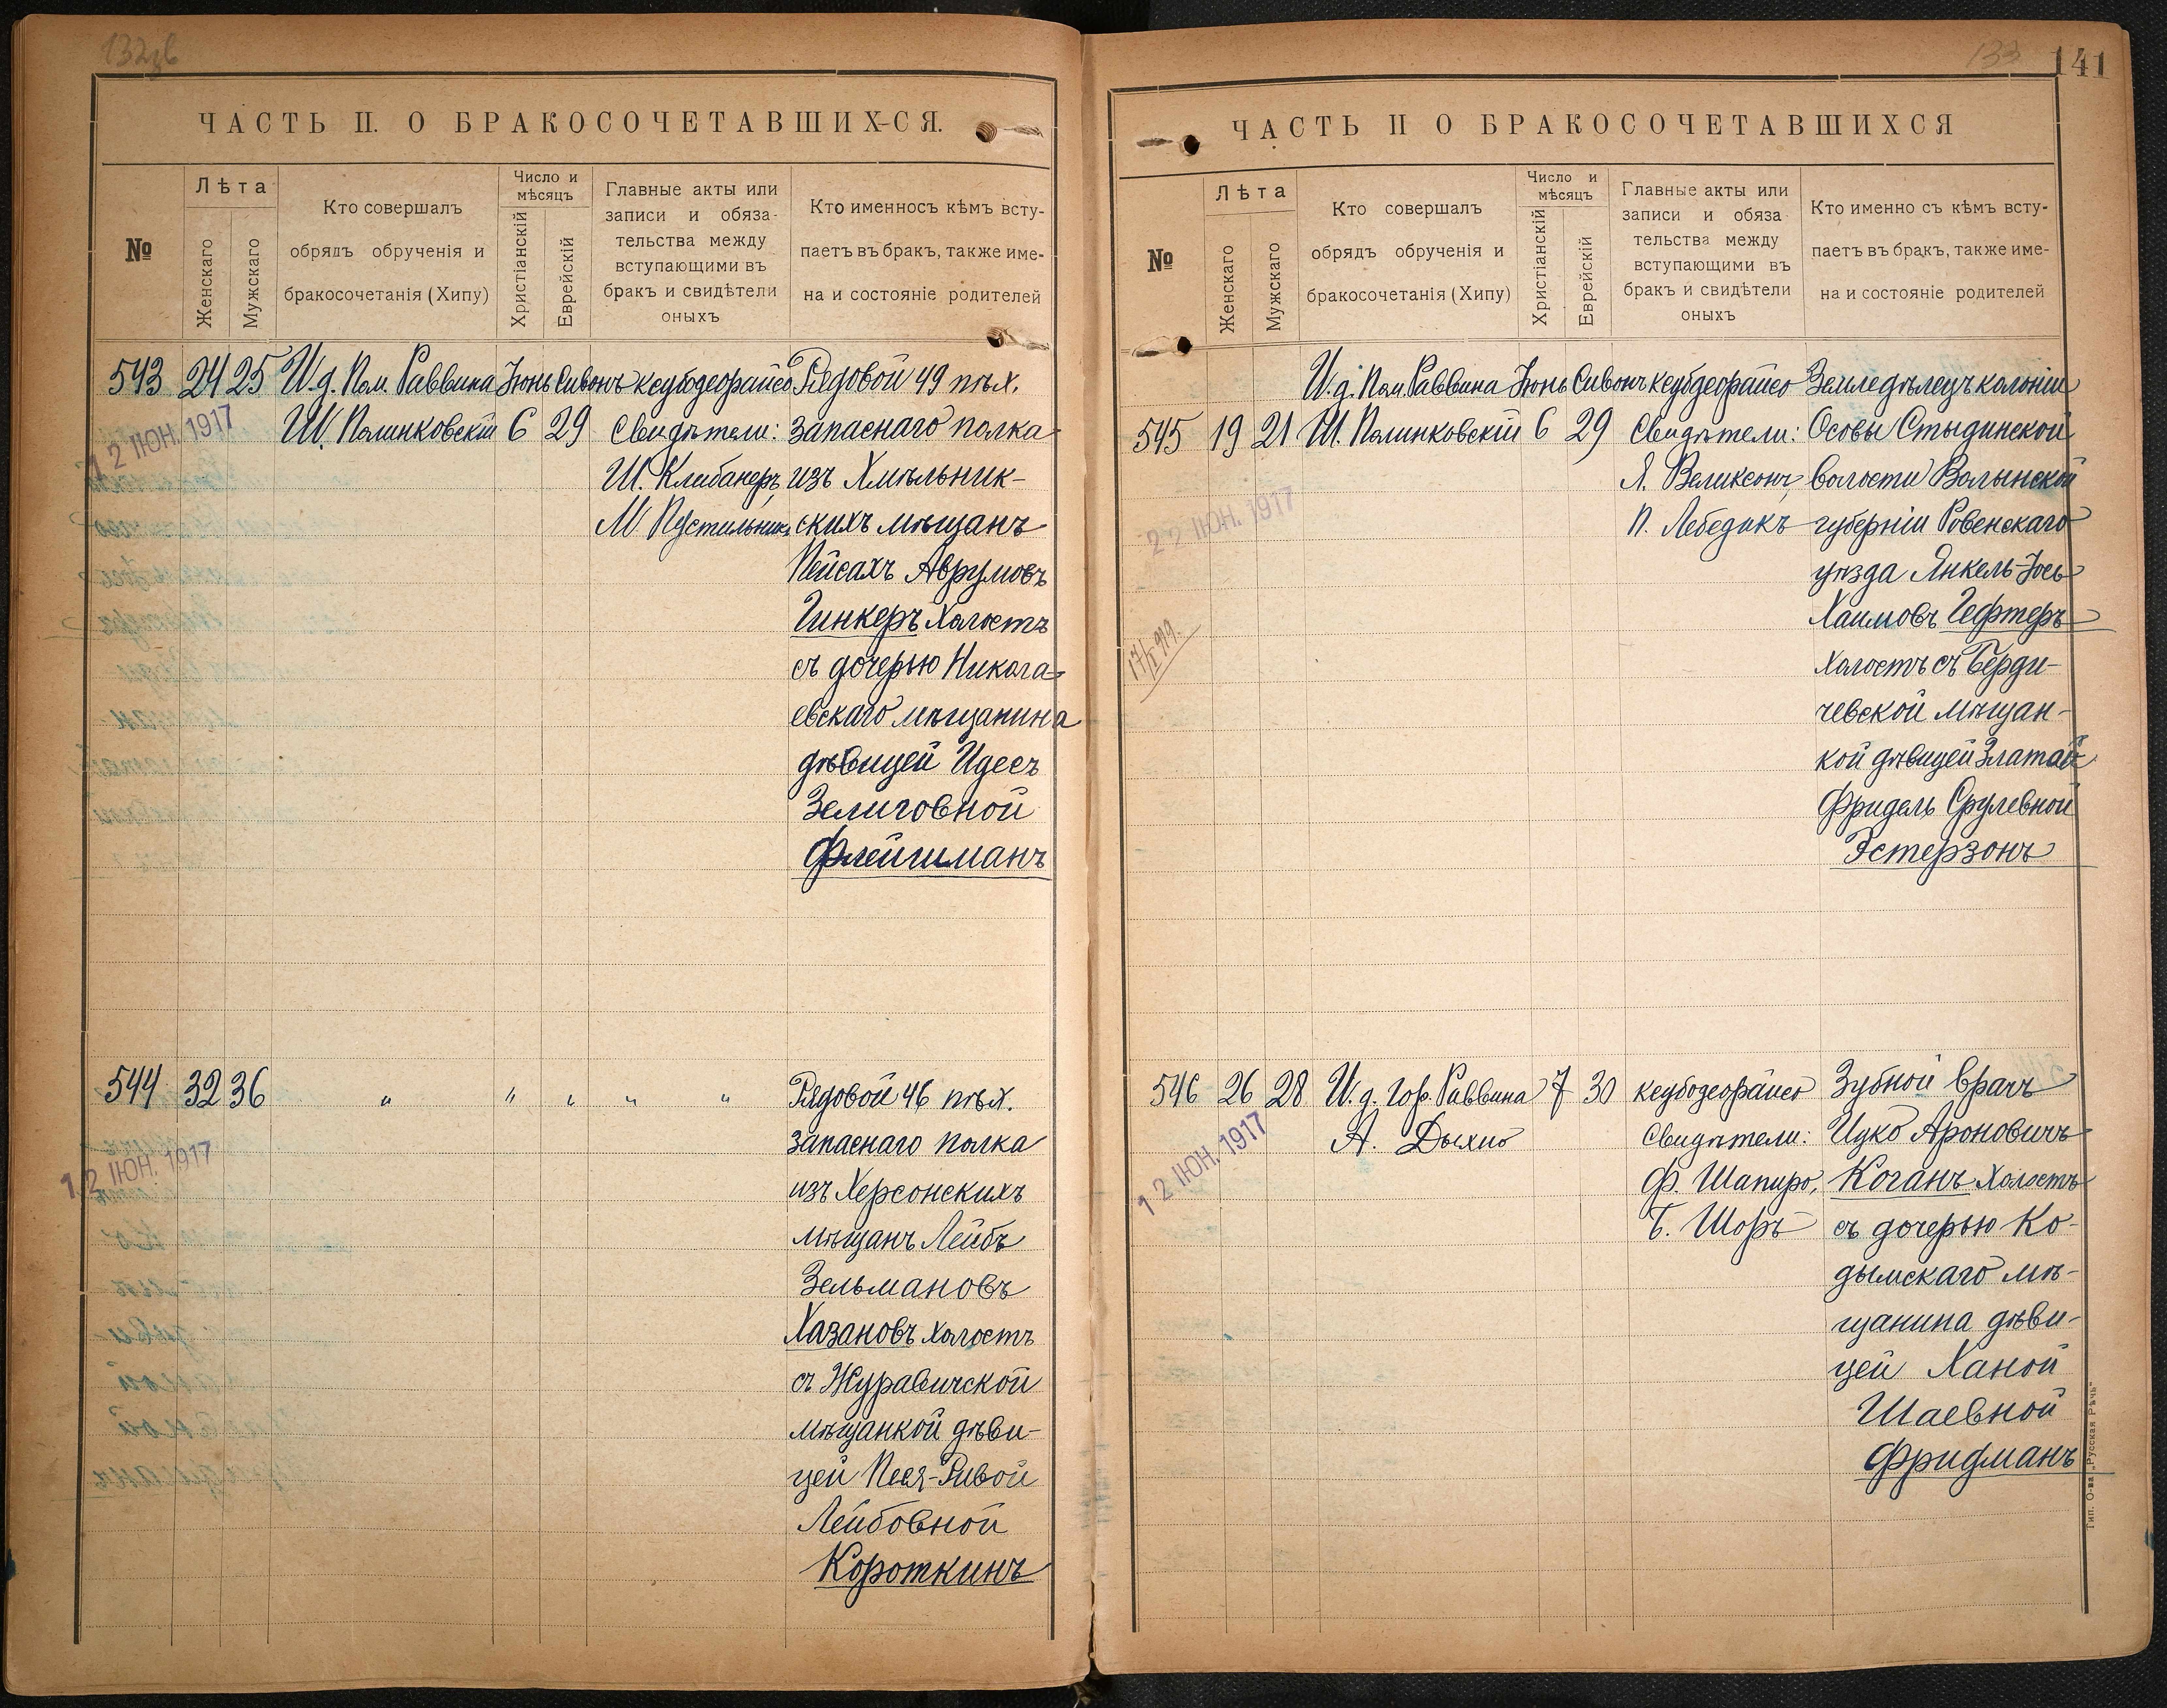 132 об
ЧАСТЬ II. О БРАКОСОЧЕТАВШИХ-СЯ.
№
Лѣта
Женскаго
Мужскаго
Кто совершалъ
обрядъ обрученія и
бракосочетанія (Хипу)
Число и
мѣсяцъ
Христіанскій
Еврейскій
Главные акты или
записи и обяза-
тельства между
вступающими въ
бракъ и свидѣтели
оныхъ
Кто именносъ кѣмъ всту-
паетъ въ бракъ, также име-
на и состояніе родителей
543 24 25 И.д. Пом. Раввина Іюнь Сивонъ ксубодеорайсо Рядовой 49 пѣх.
Ш. Полинковскій 6 29 Свидѣтели: запаснаго полка
12 ІЮН. 1917
Ш. Клибанеръ, изъ Хмѣльник-
М. Пустильникъ скихъ мѣщанъ
Пейсахъ Аврумовъ
Гинкеръ холостъ
съ дочерью Никола-
евскаго мѣщанина
дѣвицей Идесъ
Зелиговной
Флейшманъ
544 32 36 " " " " " Рядовой 46 пѣх.
запаснаго полка
12 ІЮН. 1917
изъ Херсонскихъ
мѣщанъ Лейбъ
Зельмановъ
Хазановъ холостъ
съ Журавичской
мѣщанкой дѣви-
цей Песя-Ривой
Лейбовной
Короткинъ
133 141
ЧАСТЬ II О БРАКОСОЧЕТАВШИХСЯ
№
Лѣта
Женскаго
Мужскаго
Кто совершалъ
обрядъ обрученія и
бракосочетанія (Хипу)
Число и
мѣсяцъ
Христіанскій
Еврейскій
Главные акты или
записи и обяза
тельства между
вступающими въ
бракъ и свидѣтели
оныхъ
Кто именно съ кѣмъ всту-
паетъ въ бракъ, также име-
на и состояніе родителей
И.д. Пом. Раввина Іюнь Сивонъ ксубодеорайсо Земледѣлецъ колоніи
545 19 21 Ш. Полинковскій 6 29 Свидѣтели: Осовы Стыдинской
Я. Великсонъ, волости Волынской
22 ІЮН. 1917
П. Лебедикъ губерніи Ровенскаго
уѣзда Янкель-Іось
Хаимовъ Гефтеръ
17/I 919.
холостъ съ Берди-
чевской мѣщан-
кой дѣвицей Златой
Фридель Срулевной
Эстерзонъ
546 26 28 И.д. Гор. Раввина 7 30 ксубодеорайсо Зубной врачъ
А. Дыхно Свидѣтели: Ицко Ароновичъ
12 ІЮН. 1917
Ф. Шапиро, Коганъ холостъ
Б. Шоръ съ дочерью Ко-
дымскаго мѣ-
щанина дѣви-
цей Ханой
Шаевной
Фридманъ
Тип. О-ва „Русская Рѣчь"